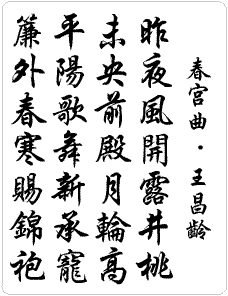 春宮曲·王昌齡
昨夜風開露井桃
未央前殿月輪高
平陽歌舞新承寵
簾外春寒賜錦袍